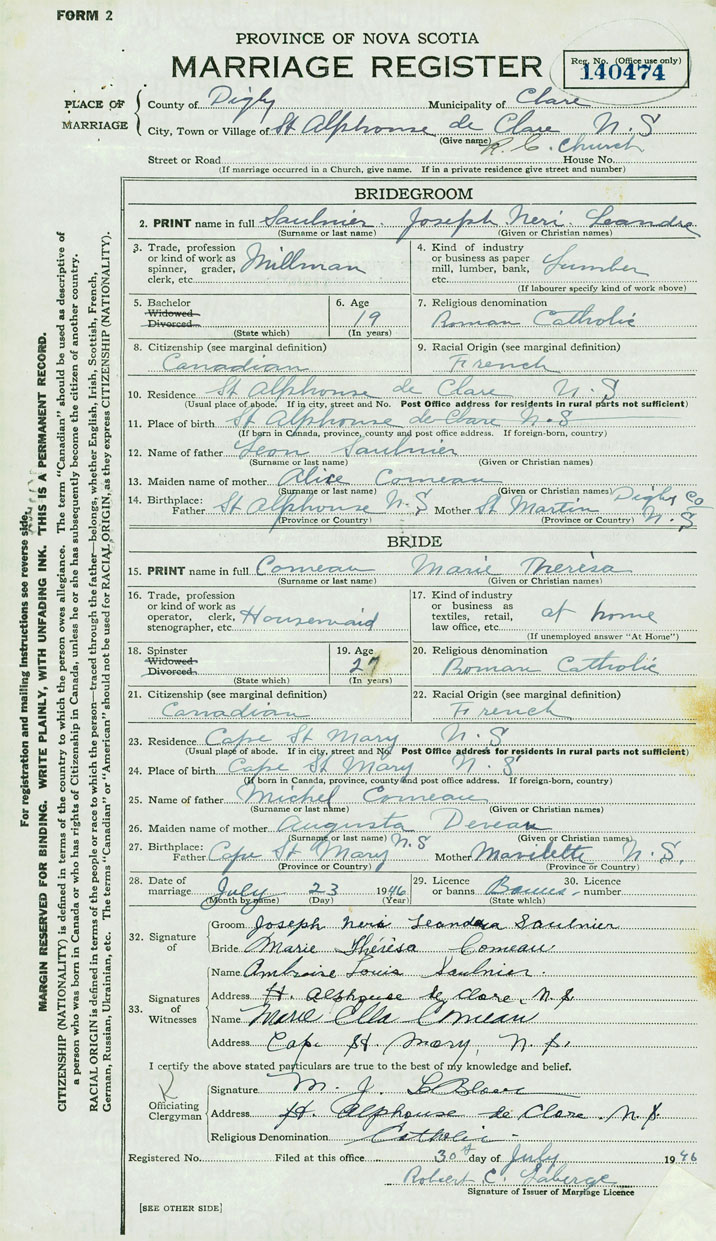 FORM 2
PROVINCE OF NOVA SCOTIA
MARRIAGE REGISTER
Reg. No. (Office use only)
140474
PLACE OF MARRIAGE
County of Digby Municipality of Clare
City, Town or Village of St Alphonse de Clare N.S
(Give name) R.C. Church
Street or Road House No.
(If marriage occurred in a Church, give name. If in a private residence give street and number)
BRIDEGROOM
2. PRINT name in full Saulnier. Joseph Neri Leandre
(Surname or last name) (Given or Christian names)
3. Trade, profession or kind of work as spinner, grader, clerk, etc. Millman
4. Kind of industry or business as paper mill, lumber, bank, etc. Lumber
(If labourer specify kind of work above)
5. Bachelor Widowed Divorced (State which)
6. Age 19 (In years)
7. Religious denomination Roman Catholic
8. Citizenship (see marginal definition) Canadian
9. Racial Origin (see marginal definition) French
10. Residence St Alphonse de Clare N.S
(Usual place of abode. If in city, street and No. Post Office address for residents in rural parts not sufficient)
11. Place of birth St Alphonse de Clare N.S
(If born in Canada, province, county and post office address. If foreign-born, country)
12. Name of father Leon Saulnier
(Surname or last name) (Given or Christian names)
13. Maiden name of mother Alice Comeau
(Surname or last name) (Given or Christian names)
14. Birthplace: Father St Alphonse N.S Mother St Martin Digby Co N.S
(Province or Country) (Province or Country)
BRIDE
15. PRINT name in full Comeau Marie Thérèsa
(Surname or last name) (Given or Christian names)
16. Trade, profession or kind of work as operator, clerk, stenographer, etc. Housemaid
17. Kind of industry or business as textiles, retail, law office, etc. at home
(If unemployed answer "At Home")
18. Spinster Widowed Divorced (State which)
19. Age 27 (In years)
20. Religious denomination Roman Catholic
21. Citizenship (see marginal definition) Canadian
22. Racial Origin (see marginal definition) French
23. Residence Cape St Mary N.S
(Usual place of abode. If in city, street and No. Post Office address for residents in rural parts not sufficient)
24. Place of birth Cape St Mary N.S
(If born in Canada, province, county and post office address. If foreign-born, country)
25. Name of father Michel Comeau
(Surname or last name) (Given or Christian names)
26. Maiden name of mother Augusta Deveau
(Surname or last name) (Given or Christian names)
27. Birthplace: Father Cape St Mary N.S Mother Mavilette N.S.
(Province or Country) (Province or Country)
28. Date of marriage July 23 1946
(Month by name) (Day) (Year)
29. Licence or banns Banns (State which)
30. Licence number
32. Signature of
Groom Joseph Neri Leandre Saulnier
Bride Marie Thérèsa Comeau
33. Signatures of Witnesses
Name Ambroise Louis Saulnier.
Address St. Alphonse de Clare, N.S.
Name Marie Ella Comeau
Address Cape St. Mary, N.S.
I certify the above stated particulars are true to the best of my knowledge and belief.
Officiating Clergyman
Signature M. J. LeBlanc
Address St. Alphonse de Clare N.S.
Religious Denomination Catholic
Registered No. Filed at this office 30th day of July 1946
Robert C. Laberge
Signature of Issuer of Marriage Licence
[SEE OTHER SIDE]
For registration and mailing instructions see reverse side.
MARGIN RESERVED FOR BINDING. WRITE PLAINLY, WITH UNFADING INK. THIS IS A PERMANENT RECORD.
CITIZENSHIP (NATIONALITY) is defined in terms of the country to which the person owes allegiance. The term "Canadian" should be used as descriptive of
a person who was born in Canada or who has rights of Citizenship in Canada, unless he or she has subsequently become the citizen of another country.
RACIAL ORIGIN is defined in terms of the people or race to which the person—traced through the father—belongs, whether English, Irish, Scottish, French,
German, Russian, Ukrainian, etc. The terms "Canadian" or "American" should not be used for RACIAL ORIGIN, as they express CITIZENSHIP (NATIONALITY).